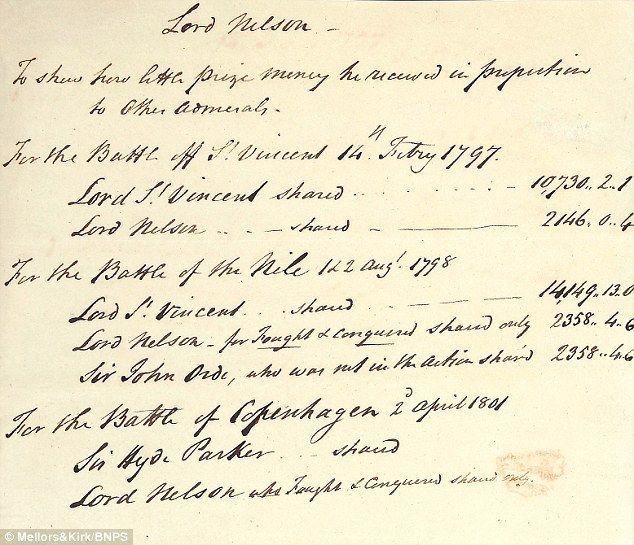 Lord Nelson –
To shew how little prize money he received in proportion
to Other Admirals –
For the Battle off St. Vincent 14th Febry 1797.
Lord St. Vincent shared . . . . . . – 10,730..2..1
Lord Nelson . . – shared – ——— 2146. 0..4
For the Battle of the Nile 1&2 Augt. 1798
Lord St. Vincent . . . shared . ——— 14,149..13.0
Lord Nelson – for Fought & Conquered shared only 2358..4..6
Sir John Orde, who was not in the Action shar'd 2358..4.6
For the Battle of Copenhagen 2d April 1801
Sir Hyde Parker . . – shared
Lord Nelson who Fought & Conquered shared only.
© Mellors&Kirk/BNPS